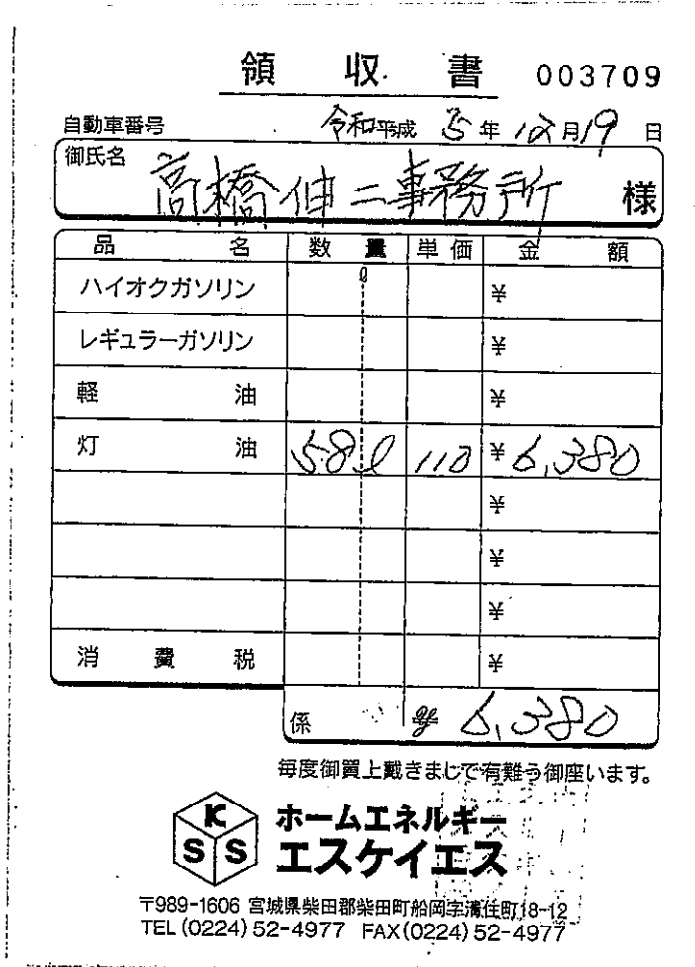 領収書 003709
自動車番号 令和平成 5年12月19日
御氏名 高橋伸二事務所 様
品名 数量 単価 金額
ℓ
ハイオクガソリン ¥
レギュラーガソリン ¥
軽油 ¥
灯油 58.0 110 ¥6,380
¥
¥
¥
消費税 ¥
係 計 6,380
毎度御買上戴きまして有難う御座います。
KSS ホームエネルギー
エスケイエス
〒989-1606 宮城県柴田郡柴田町船岡字清住町18-12
TEL(0224)52-4977 FAX(0224)52-4977